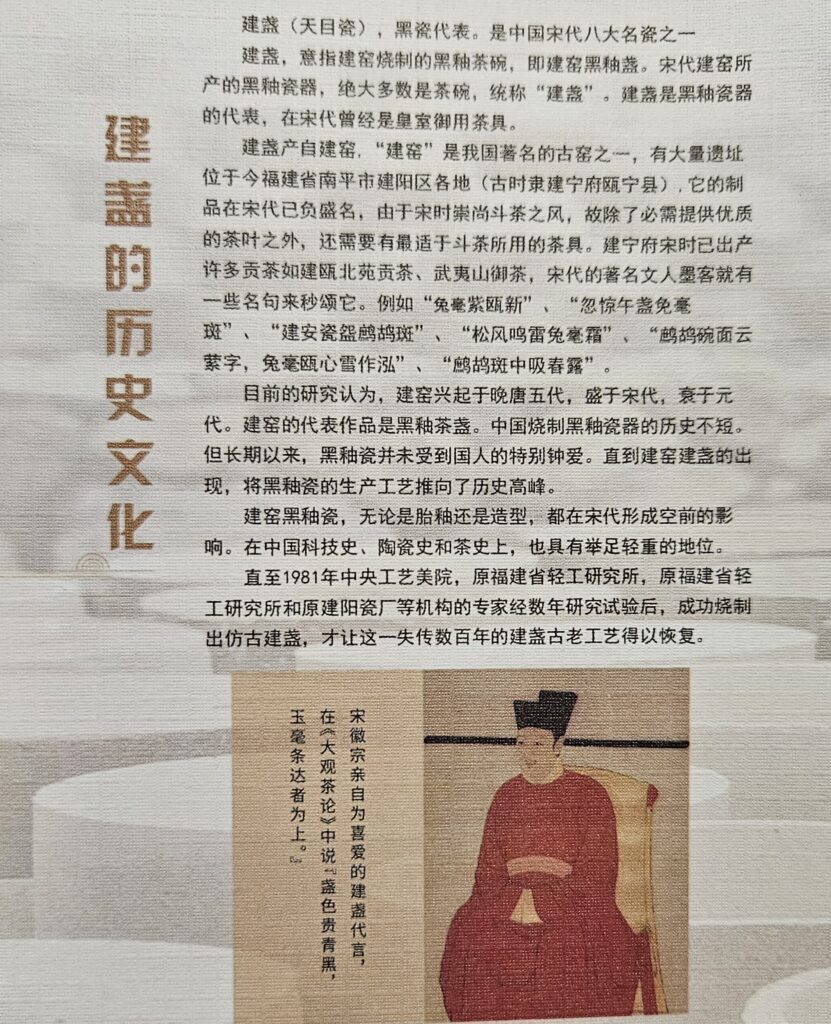 建盏的历史文化
建盏（天目瓷），黑瓷代表。是中国宋代八大名瓷之一
建盏，意指建窑烧制的黑釉茶碗，即建窑黑釉盏。宋代建窑所
产的黑釉瓷器，绝大多数是茶碗，统称“建盏”。建盏是黑釉瓷器
的代表，在宋代曾经是皇室御用茶具。
建盏产自建窑，“建窑”是我国著名的古窑之一，有大量遗址
位于今福建省南平市建阳区各地（古时隶建宁府瓯宁县）,它的制
品在宋代已负盛名，由于宋时崇尚斗茶之风，故除了必需提供优质
的茶叶之外，还需要有最适于斗茶所用的茶具。建宁府宋时已出产
许多贡茶如建瓯北苑贡茶、武夷山御茶，宋代的著名文人墨客就有
一些名句来秒颂它。例如“兔毫紫瓯新”、“忽惊午盏兔毫
斑”、“建安瓷盌鹧鸪斑”、“松风鸣雷兔毫霜”、“鹧鸪碗面云
萦字，兔毫瓯心雪作泓”、“鹧鸪斑中吸春露”。
目前的研究认为，建窑兴起于晚唐五代，盛于宋代，衰于元
代。建窑的代表作品是黑釉茶盏。中国烧制黑釉瓷器的历史不短。
但长期以来，黑釉瓷并未受到国人的特别钟爱。直到建窑建盏的出
现，将黑釉瓷的生产工艺推向了历史高峰。
建窑黑釉瓷，无论是胎釉还是造型，都在宋代形成空前的影
响。在中国科技史、陶瓷史和茶史上，也具有举足轻重的地位。
直至1981年中央工艺美院，原福建省轻工研究所，原福建省轻
工研究所和原建阳瓷厂等机构的专家经数年研究试验后，成功烧制
出仿古建盏，才让这一失传数百年的建盏古老工艺得以恢复。
宋徽宗亲自为喜爱的建盏代言，
在《大观茶论》中说『盏色贵青黑，
玉毫条达者为上。』